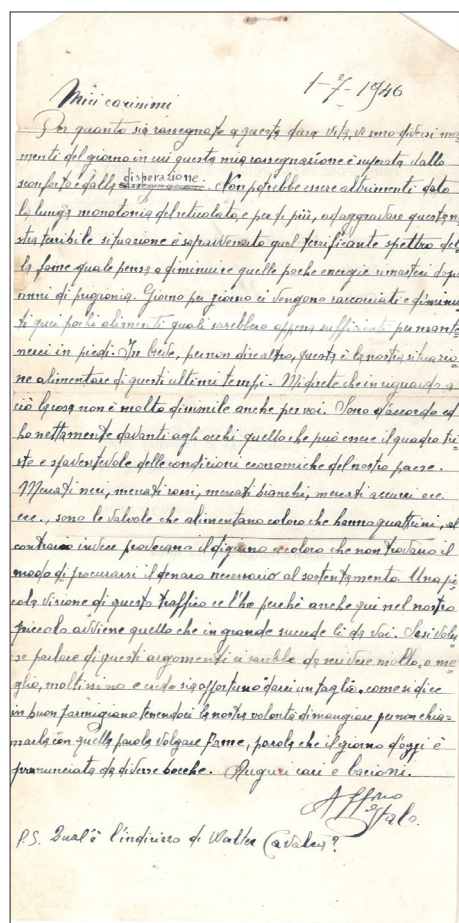 1-7-1946
Miei carissimi
Per quanto sia rassegnato a questa dura vita, vi sono diversi mo=
menti del giorno in cui questa mia rassegnazione è superata dallo
sconforto e dalla disperazione. Non potrebbe essere altrimenti dato
la lunga monotonia del reticolato, e per di più, ad aggravare questa no=
stra terribile situazione è sopravvenuto quel terrificante spettro del=
la fame quale pensa a diminuire quelle poche energie rimasteci dopo
anni di prigionia. Giorno per giorno ci vengono raccorciati e diminui=
ti quei pochi alimenti quali sarebbero appena sufficienti per mante=
nerci in piedi. In breve, per non dire altro, questa è la nostra situazio=
ne alimentare di questi ultimi tempi. Mi direte che in riguardo a
ciò la cosa non è molto dissimile anche per voi. Sono d'accordo ed
ho nettamente davanti agli occhi quello che può essere il quadro tri=
ste e spaventevole delle condizioni economiche del nostro paese.
Mercati neri, mercati rossi, mercati bianchi, mercati azzurri ecc.
ecc., sono le valvole che alimentano coloro che hanno quattrini, al
contrario invece provocano il digiuno a coloro che non trovano il
modo di procurarsi il denaro necessario al sostentamento. Una pic=
cola visione di questo traffico ce l'ho perchè anche qui nel nostro
piccolo avviene quello che in grande succede lì da voi. Se si voles=
se parlare di questi argomenti ci sarebbe da scrivere molto, o me=
glio, moltissimo e credo sia opportuno darci un taglio, come si dice
in buon parmigiano tenendoci la nostra volontà di mangiare per non chia=
marla con quella parola volgare Fame, parola che il giorno d'oggi è
pronunciata da diverse bocche. Auguri cari e bacioni.
Aff.mo
Italo
P.S. Qual'è l'indirizzo di Walter Cavalca?